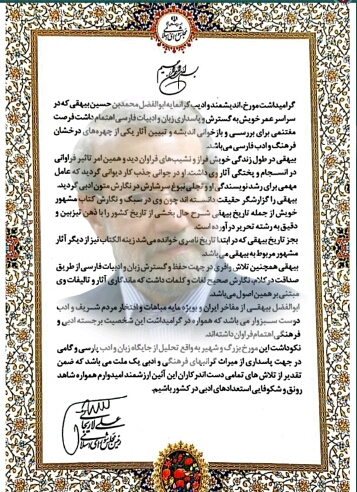 بسم الله الرحمن الرحیم
گرامیداشت مورخ، اندیشمند و ادیب گرانمایه ابوالفضل محمدبن حسین بیهقی که در
سراسر عمر خویش به گسترش و پاسداری زبان و ادبیات فارسی اهتمام داشت فرصت
مغتنمی برای بررسی و بازخوانی اندیشه و تبیین آثار یکی از چهره‌های درخشان
فرهنگ و ادب فارسی می‌باشد.
بیهقی در طول زندگی خویش فراز و نشیب‌های فراوان دید و همین امر تاثیر فراوانی
در انسجام و پختگی آثار وی داشت. او در جوانی جذب کار دیوانی گردید که عامل
مهمی برای رشد نویسندگی او و تجلی نبوغ سرشارش در نگارش متون ادبی گردید.
بیهقی را گزارشگر حقیقت دانسته اند چون وی در سبک و نگارش کتاب مشهور
خویش از جمله تاریخ بیهقی شرح حال بخشی از تاریخ کشور را با ذهن تیزبین و
دقیق به رشته تحریر در آورده است.
بجز تاریخ بیهقی که در ابتدا تاریخ ناصری خوانده می‌شد، زینه الکتاب نیز از دیگر آثار
مشهور مربوط به بیهقی می باشد.
بیهقی همچنین تلاش وافری در جهت حفظ و گسترش زبان و ادبیات فارسی از طریق
صداقت در کلام، نگارش صحیح لغات و کلمات داشت که ماندگاری آثار و تالیفات وی
مبتنی بر همین اصول می‌باشد.
ابوالفضل بیهقی از مفاخر ایران و بویژه مایه مباهات و افتخار مردم شریف و ادب
دوست سبزوار می باشد که همواره در گرامیداشت این شخصیت برجسته ادبی و
فرهنگی اهتمام فراوان داشته‌اند.
نکوداشت این مورخ بزرگ و شهیر به واقع تجلیل از جایگاه زبان و ادب پارسی و گامی
در جهت پاسداری از میراث گرانبهای فرهنگی و ادبی یک ملت می باشد که ضمن
تقدیر از تلاش های تمامی دست اندرکاران این آئین ارزشمند امیدوارم همواره شاهد
رونق و شکوفایی استعدادهای ادبی در کشور باشیم.
علی لاریجانی
رئیس مجلس شورای اسلامی